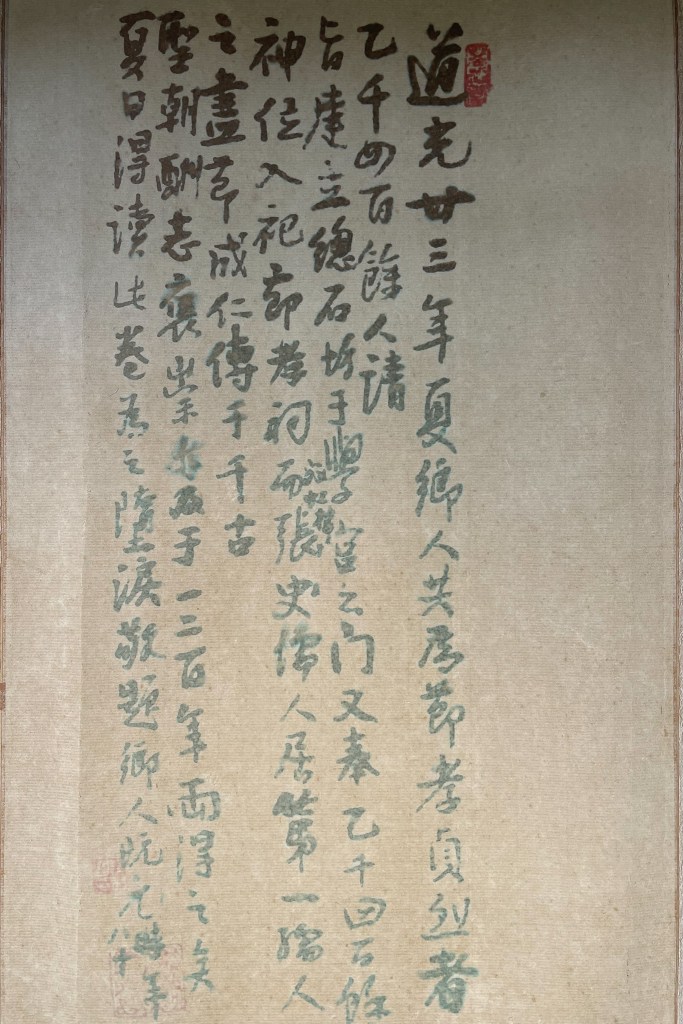 道光廿三年夏鄉人共為節孝貞烈者
乙千四百餘人請
旨建立總石坊于學宮之門又奉乙千四百餘
神位入祀節孝祠而張史孺人居第一孺人
之盡節成仁傳于千古
聖朝酬志褒崇于一二百年而得之矣
夏日得讀此卷為之墮淚敬題鄉人阮元時年
八十